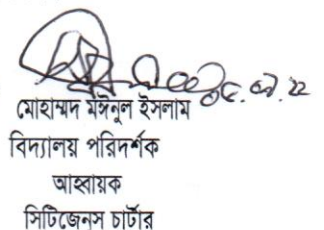 মোহাম্মদ মঈনুল ইসলাম
বিদ্যালয় পরিদর্শক
আহ্বায়ক
সিটিজেনস চার্টার